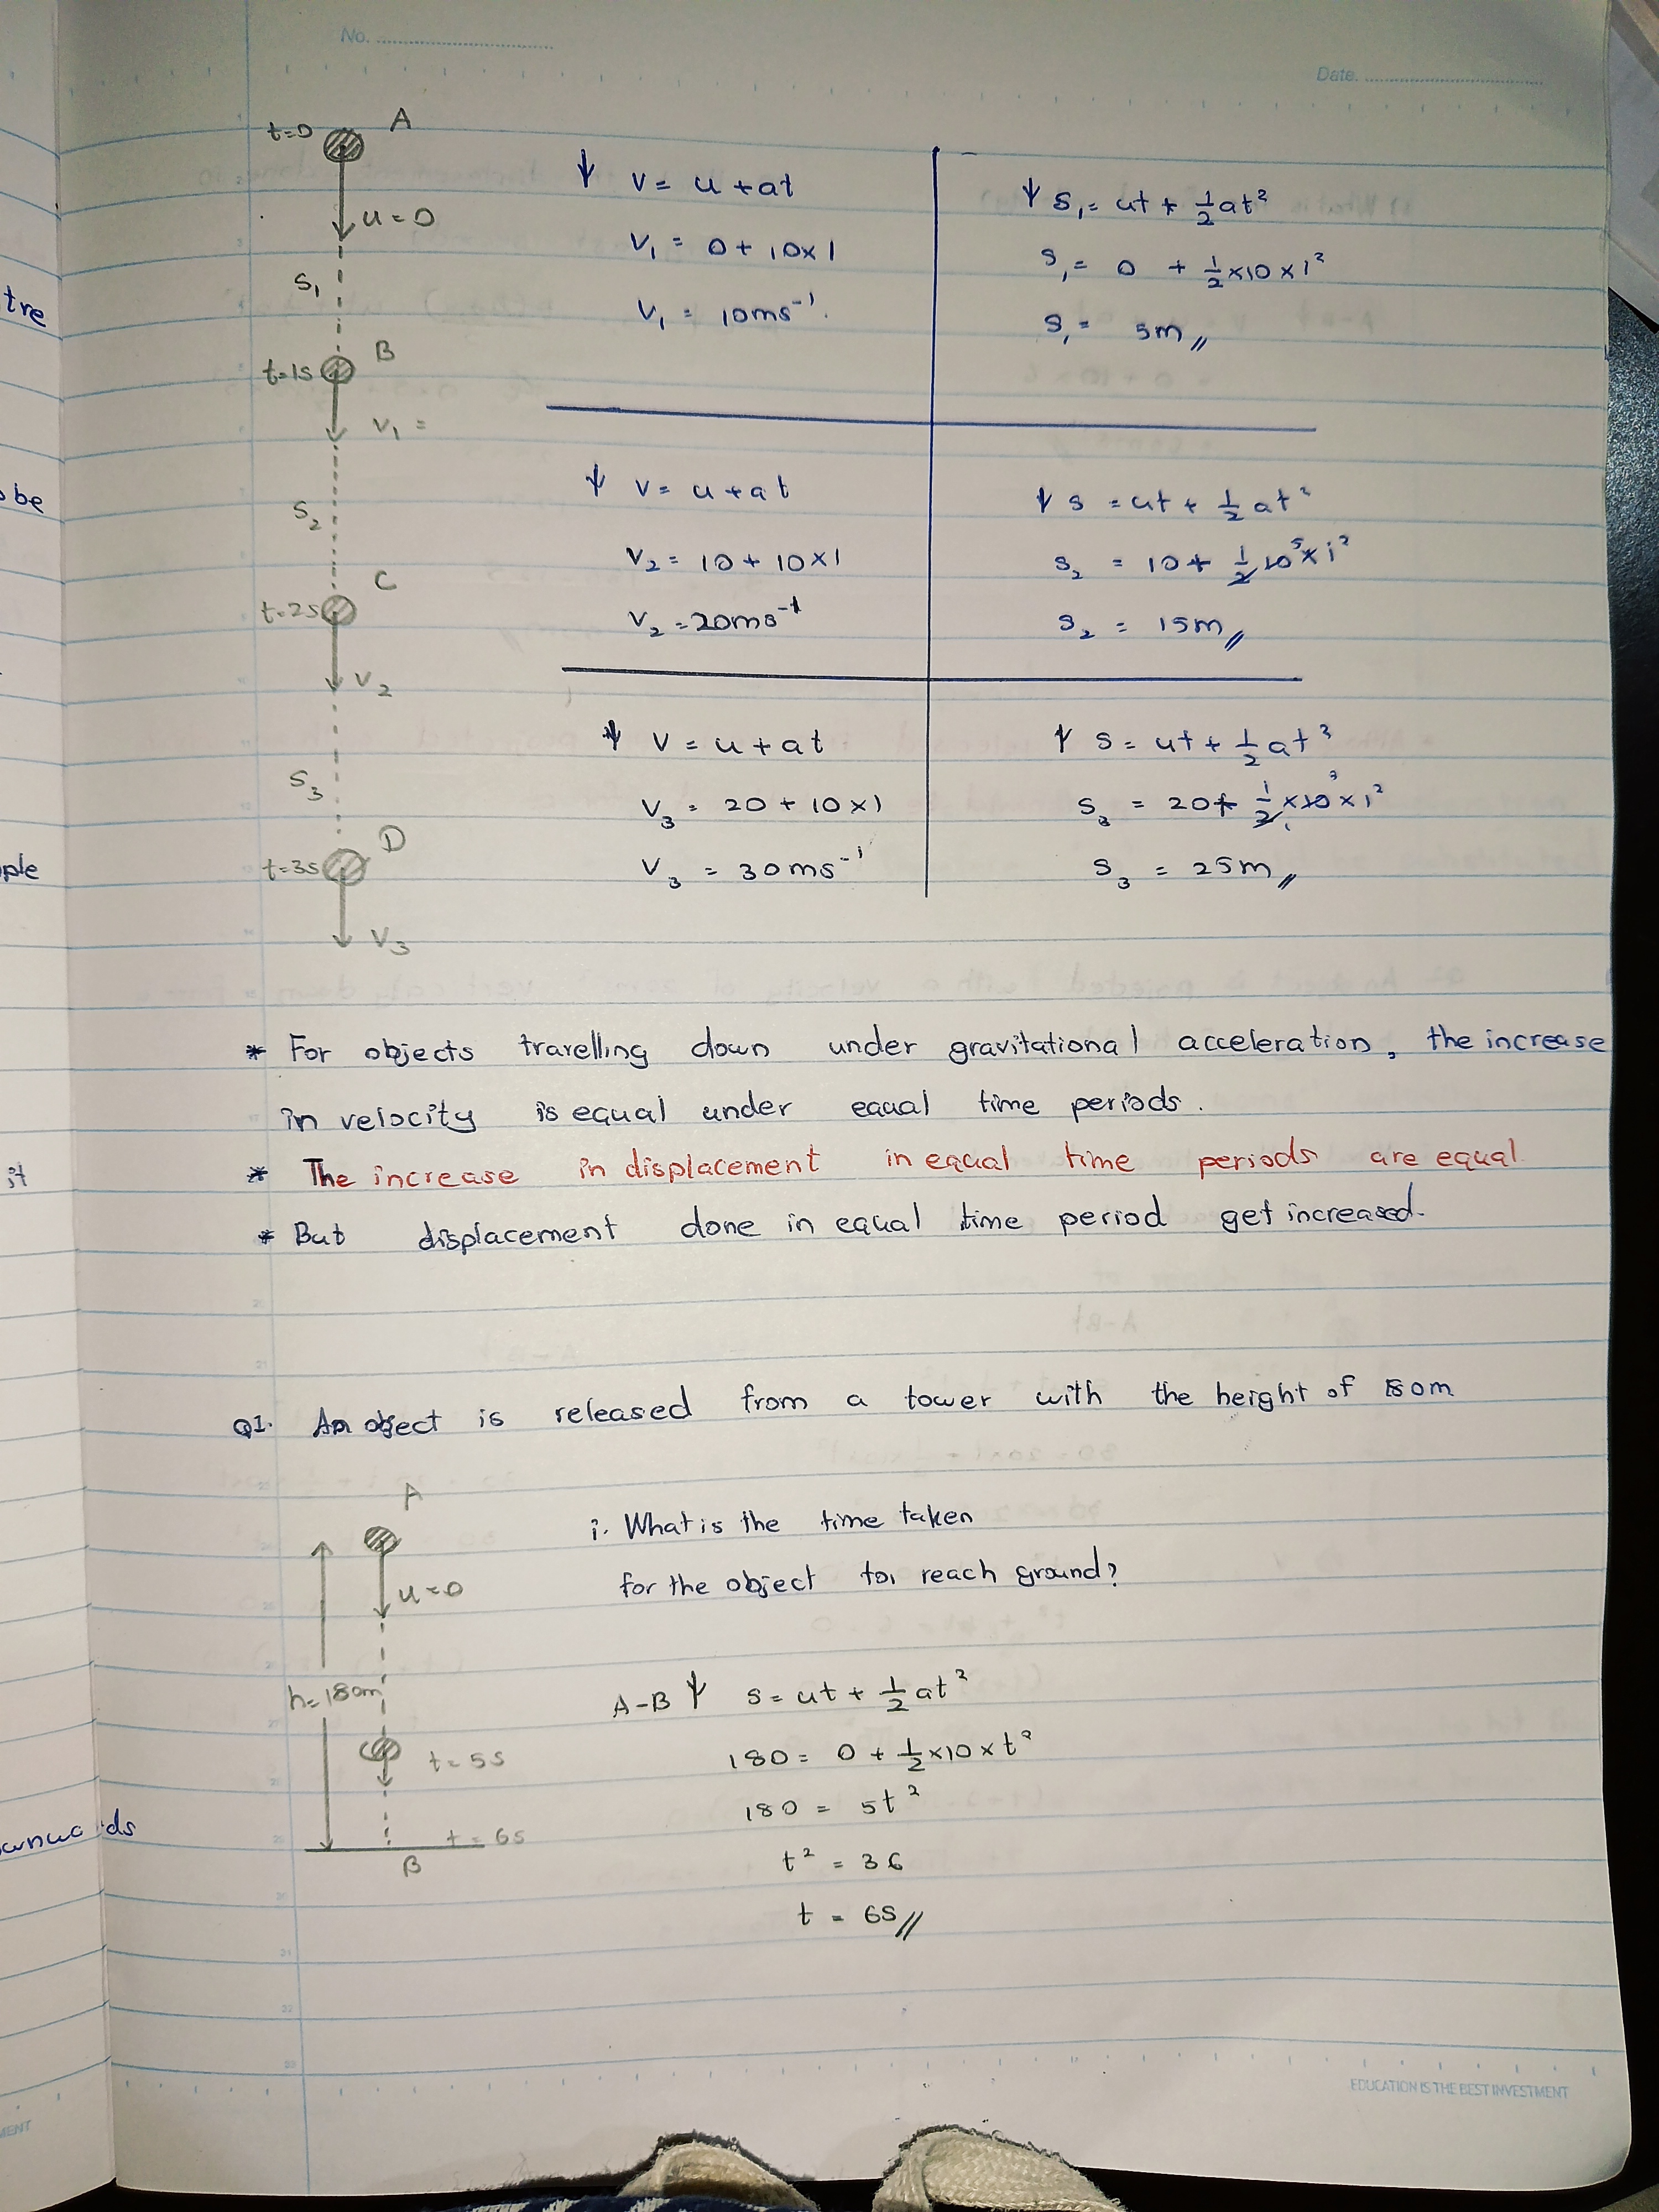 No.
Date.
t=0 A
u=0
S₁
t=1s B
V₁ =
S₂
t=2s C
V₂
S₃
t=3s D
V₃
↓ V = u + at
V₁ = 0 + 10×1
V₁ = 10ms⁻¹.
↓ S₁ = ut + ½at²
S₁ = 0 + ½×10×1²
S₁ = 5m//
↓ V = u + at
V₂ = 10 + 10×1
V₂ = 20ms⁻¹
↓ S = ut + ½at²
S₂ = 10 + ½ 10 5 × 1²
S₂ = 15m//
↓ V = u + at
V₃ = 20 + 10×1
V₃ = 30ms⁻¹
↓ S = ut + ½at²
S₃ = 20 + ½×10×1²
S₃ = 25m//
* For objects travelling down under gravitational acceleration, the increase
in velocity is equal under equal time periods.
* The increase in displacement in equal time periods are equal
* But displacement done in equal time period get increased.
Q1. An object is released from a tower with the height of m
A
u=0
h=180m
t=5s
t=6s
B
i. What is the time taken
for the object to, reach ground?
A-B ↓ S = ut + ½at²
180 = 0 + ½×10×t²
180 = 5t²
t² = 36
t = 6s//
EDUCATION IS THE BEST INVESTMENT
tre
be
ple
it
ds
MENT